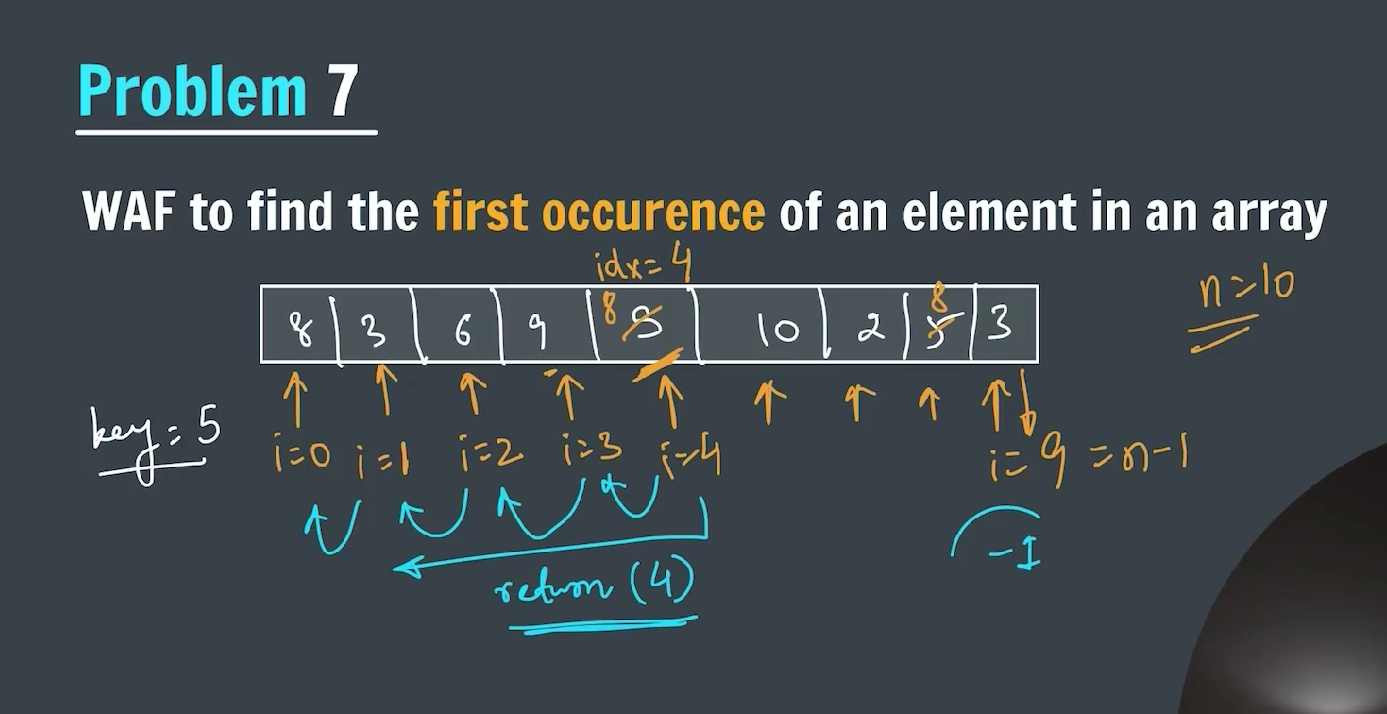 Problem 7
WAF to find the first occurence of an element in an array
idx=4
n=10
8 3 6 9 8 5 10 2 8 5 3
key=5
i=0 i=1 i=2 i=3 i=4 i=9=n-1
-1
return (4)